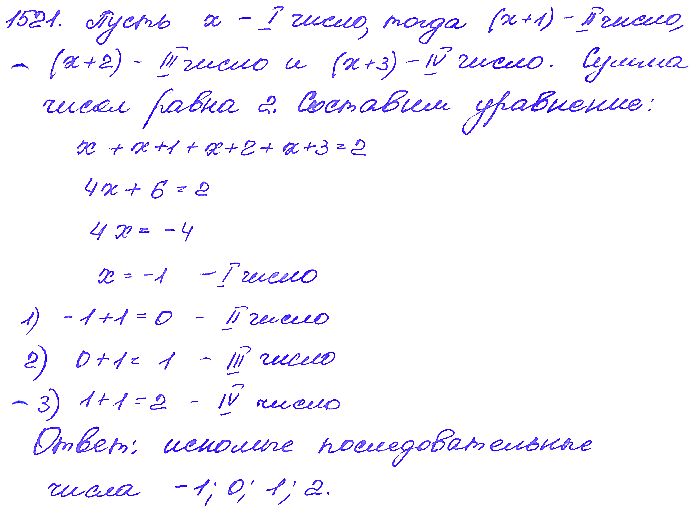 1521. Пусть x – I число, тогда (x+1) – II число,
– (x+2) – III число и (x+3) – IV число. Сумма
чисел равна 2. Составим уравнение:
x + x+1 + x+2 + x+3 = 2
4x + 6 = 2
4x = -4
x = -1 – I число
1) -1+1=0 – II число
2) 0+1= 1 – III число
– 3) 1+1=2 – IV число
Ответ: искомые последовательные
числа -1; 0; 1; 2.